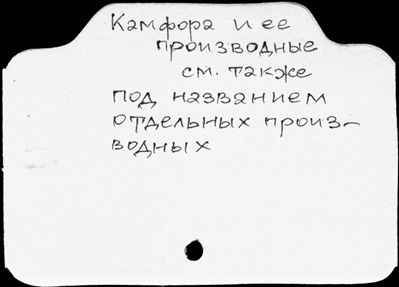 Камфора и ее
производные
см. также
под названием
отдельных произ-
водных